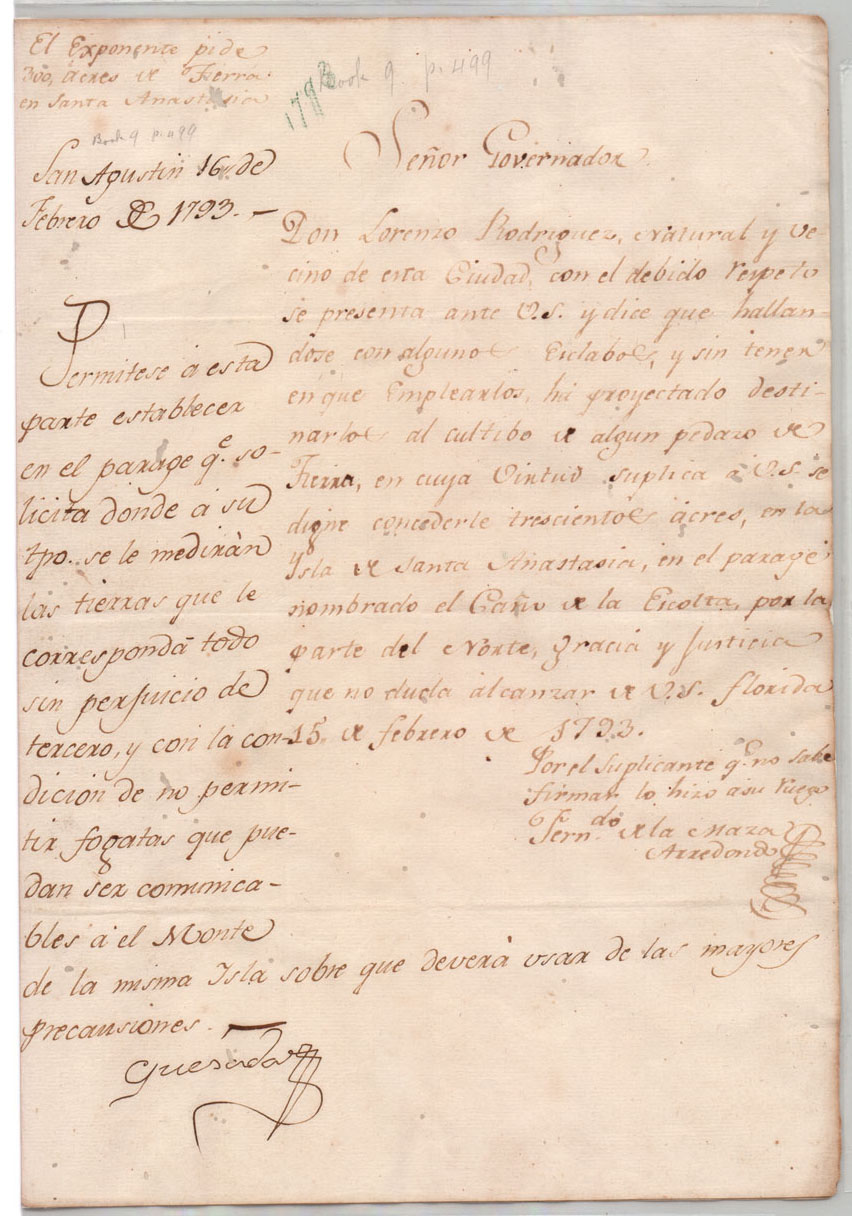 El Exponente pide
300, acres de Tierra
en Santa Anastasia
Book 9 p. 499
1793
Book 9 p. 499
Señor Governador
Don Lorenzo Rodriguez, Natural y Ve-
cino de esta Ciudad, con el debido respeto
se presenta ante V.S. y dice que hallan-
dose con algunos Esclabos, y sin tener
en que Emplearlos, há proyectado desti-
narlos al cultibo de algun pedazo de
Tierra, en cuya Virtud suplica á V.S. se
digne concederle trescientos ácres, en la
Ysla de Santa Anastasia, en el parage
nombrado el Caño de la Escolta, por la
parte del Norte, gracia y Justicia
que no duda alcanzar de V.S. florida
15 de febrero de 1793.
Por el Suplicante q.e no sabe
firmar lo hizo asu ruego
Fern.do de la Maza
Arredondo
San Agustin 16 de
Febrero de 1793. —
Permitese á esta
parte establecer
en el parage q.e so-
licita donde á su
tpo. se le medirán
las tierras que le
correspondã todo
sin perjuicio de
tercero, y con la con-
dicion de no permi-
tir fogatas que pue-
dan ser comunica-
bles á el Monte
de la misma Isla sobre que deverá usar de las mayores
precausiones. —
Quesada